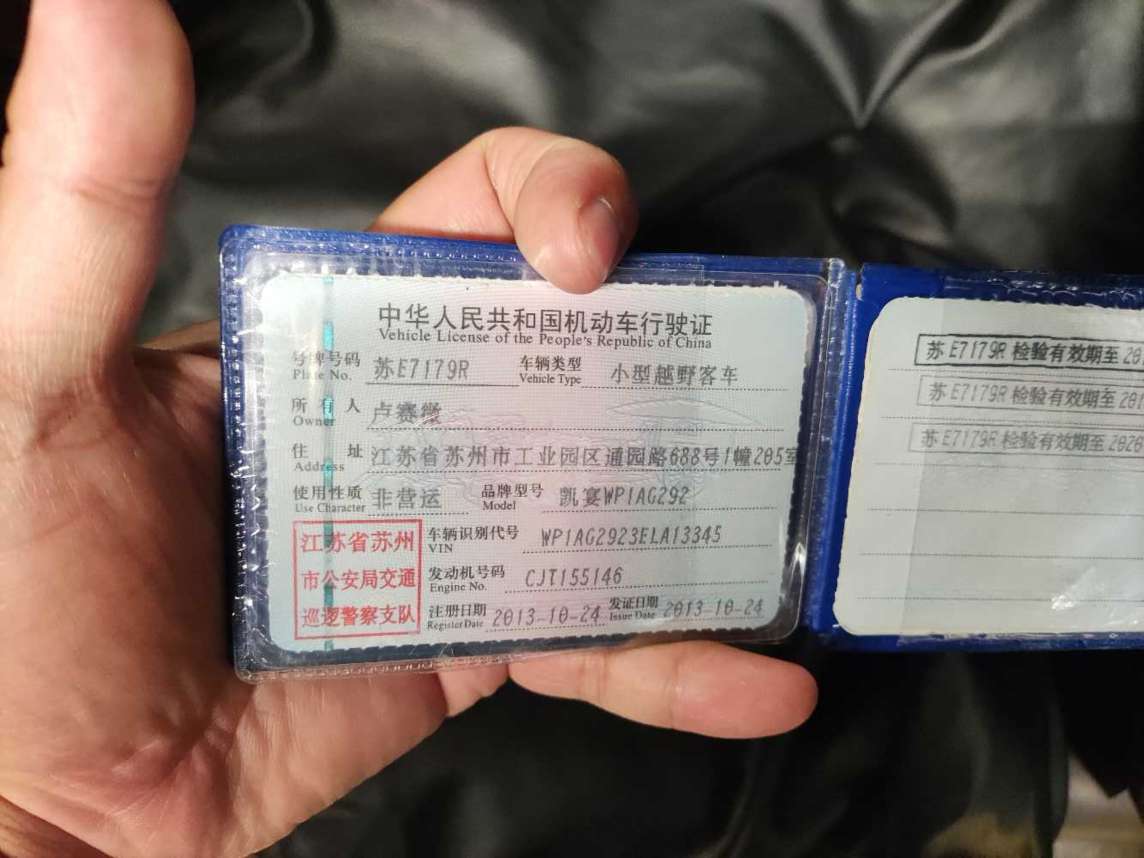 中华人民共和国机动车行驶证
Vehicle License of the People's Republic of China
号牌号码 苏E7179R 车辆类型 小型越野客车
Plate No. Vehicle Type
所有人 卢赛
Owner
住址 江苏省苏州市工业园区通园路688号1幢205室
Address
使用性质 非营运 品牌型号 凯宴WP1AG292
Use Character Model
江苏省苏州
市公安局交通
巡逻警察支队
车辆识别代号 WP1AG2923ELA13345
VIN
发动机号码 CJT155146
Engine No.
注册日期 2013-10-24 发证日期 2013-10-24
Register Date Issue Date
苏E7179R 检验有效期至20
苏E7179R 检验有效期至201
苏E7179R 检验有效期至2020